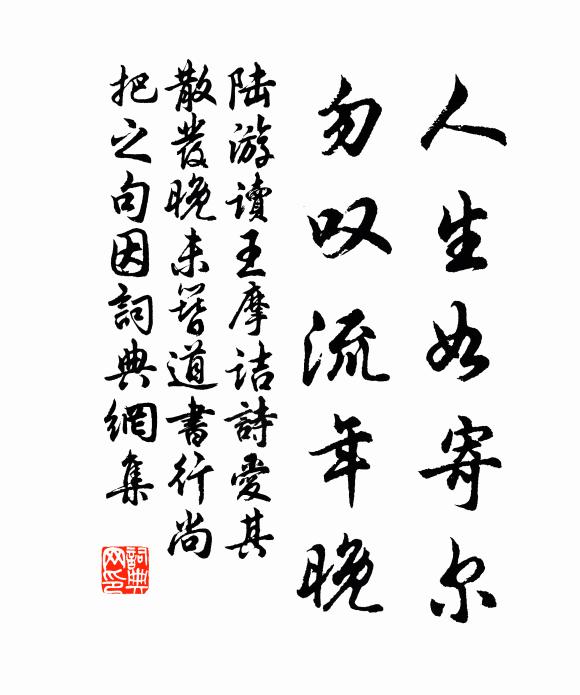 人生如寄尔
勿叹流年晚
陆游读王摩诘詩愛其
散發晚未簪道書行尚
把之句因詞典網集
詞典网印